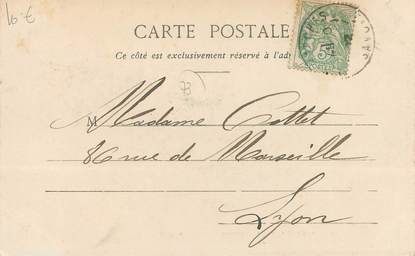 10 €
CARTE POSTALE
Ce côté est exclusivement réservé à l'adr
5
73
M Madame Cottet
86 rue de Marseille
Lyon